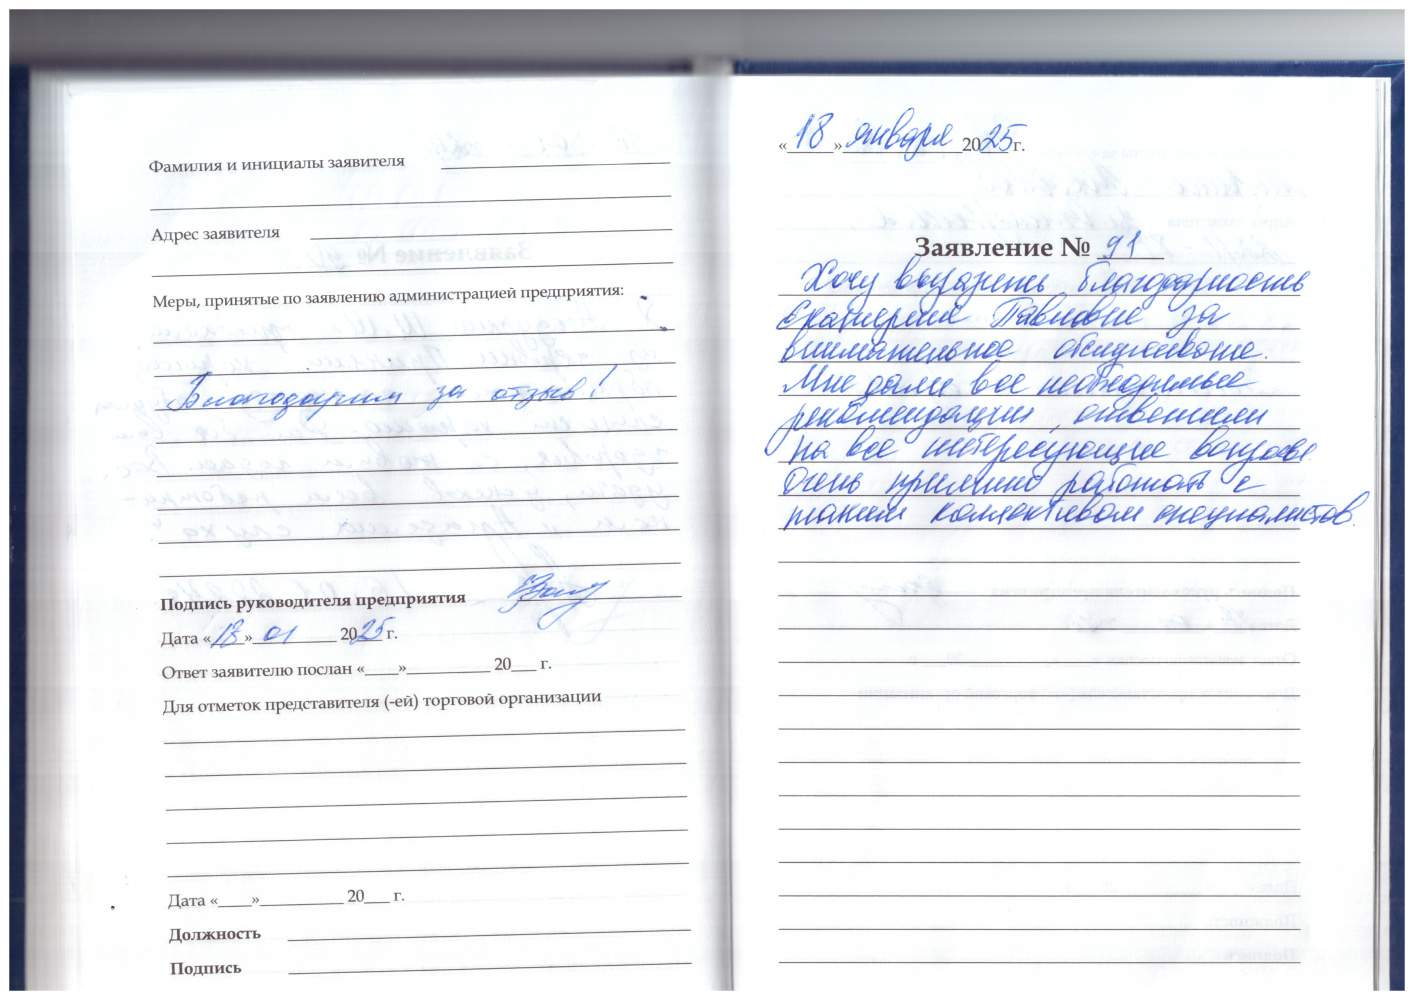 Фамилия и инициалы заявителя
Адрес заявителя
Меры, принятые по заявлению администрацией предприятия:
Благодарим за отзыв!
Подпись руководителя предприятия
Дата «18» 01 2025 г.
Ответ заявителю послан «____»__________ 20___ г.
Для отметок представителя (-ей) торговой организации
Дата «____»__________ 20___ г.
Должность
Подпись
«18» января 2025г.
Заявление № 91
Хочу выразить благодарность
Екатерине Павловне за
внимательное обслуживание.
Мне дали все необходимые
рекомендации, ответили
на все интересующие вопросы.
Очень приятно работать с
таким коллективом специалистов.